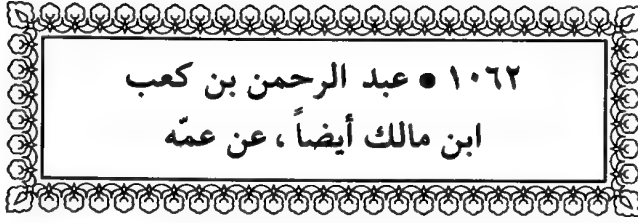 ١٠٦٢ ● عبد الرحمن بن كعب
ابن مالك أيضاً ، عن عمّه